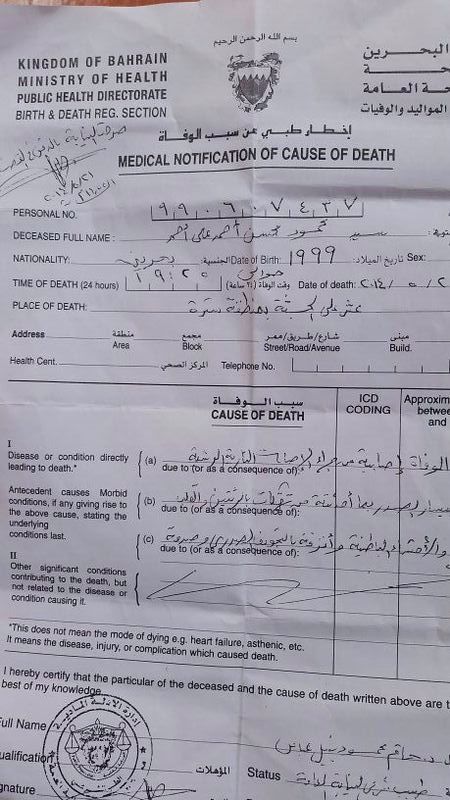 بسم الله الرحمن الرحيم
KINGDOM OF BAHRAIN
MINISTRY OF HEALTH
PUBLIC HEALTH DIRECTORATE
BIRTH & DEATH REG. SECTION
البحرين
حة
حة العامة
المواليد والوفيات
إخطار طبي عن سبب الوفاة
MEDICAL NOTIFICATION OF CAUSE OF DEATH
PERSONAL NO. ٩٩٠٦٠٧٤٣٧
DECEASED FULL NAME : سيد محمود محسن أحمد علي أحمد
NATIONALITY: بحريني الجنسية: Date of Birth: 1999 تاريخ الميلاد: Sex:
TIME OF DEATH (24 hours) ١٩:٢٥ حوالي وقت الوفاة (٢٤ ساعة) Date of death: ٢٠١٤/٥/٢
PLACE OF DEATH: عثر على الجثة بمنطقة سترة
Address منطقة مجمع شارع/طريق/ممر مبنى
Area Block Street/Road/Avenue Build.
Health Cent. المركز الصحي Telephone No.
سبب الوفاة
CAUSE OF DEATH
ICD CODING
Approxim
betwee
and
I
Disease or condition directly leading to death.*
(a) الوفاة إصابية من جراء الإصابات النارية الرشية
due to (or as a consequence of):
Antecedent causes Morbid conditions, if any giving rise to the above cause, stating the underlying conditions last.
(b) بيسار الصدر بما أحدثته من تهتكات بالرئتين والقلب
due to (or as a consequence of):
(c) والأحشاء الباطنية وأنزفة بالتجويف الصدري وصدمة
due to (or as a consequence of):
II
Other significant conditions contributing to the death, but not related to the disease or condition causing it.
*This does not mean the mode of dying e.g. heart failure, asthenic, etc.
It means the disease, injury, or complication which caused death.
I hereby certify that the particular of the deceased and the cause of death written above are t
best of my knowledge.
إدارة الأدلة المادية
Full Name
ualification المؤهلات Status
gnature